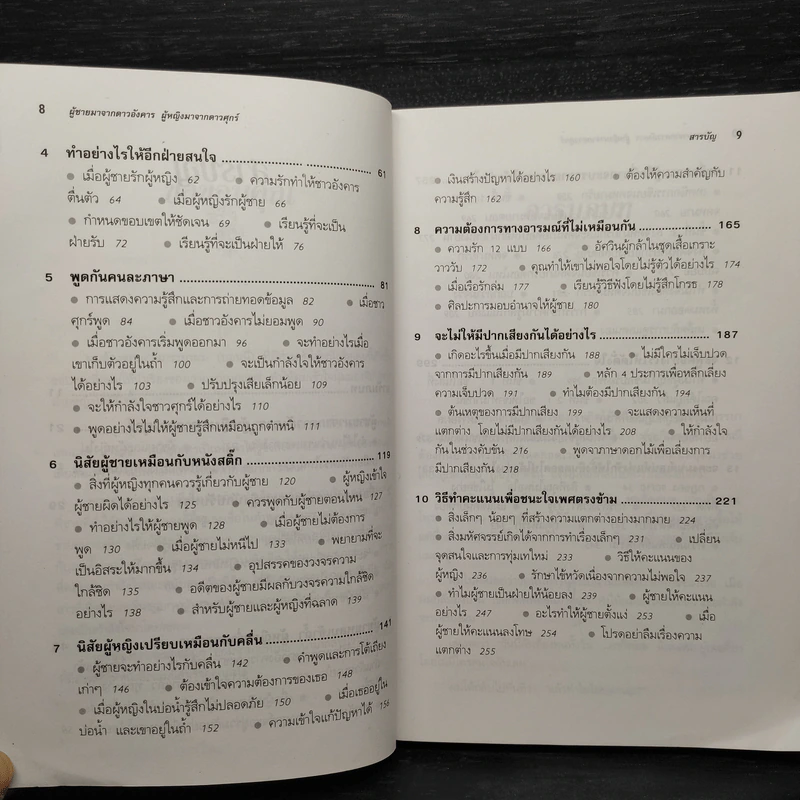 8 ผู้ชายมาจากดาวอังคาร ผู้หญิงมาจากดาวศุกร์
4 ทำอย่างไรให้อีกฝ่ายสนใจ .......................... 61
● เมื่อผู้ชายรักผู้หญิง 62 ● ความรักทำให้ชาวอังคาร
ตื่นตัว 64 ● เมื่อผู้หญิงรักผู้ชาย 66
● กำหนดขอบเขตให้ชัดเจน 69 ● เรียนรู้ที่จะเป็น
ฝ่ายรับ 72 ● เรียนรู้ที่จะเป็นฝ่ายให้ 76
5 พูดกันคนละภาษา .......................... 81
● การแสดงความรู้สึกและการถ่ายทอดข้อมูล 82 ● เมื่อชาว
ศุกร์พูด 84 ● เมื่อชาวอังคารไม่ยอมพูด 90
● เมื่อชาวอังคารเริ่มพูดออกมา 96 ● จะทำอย่างไรเมื่อ
เขาเก็บตัวอยู่ในถ้ำ 100 ● จะเป็นกำลังใจให้ชาวอังคาร
ได้อย่างไร 103 ● ปรับปรุงเสียเล็กน้อย 109
● จะให้กำลังใจชาวศุกร์ได้อย่างไร 110
● พูดอย่างไรไม่ให้ผู้ชายรู้สึกเหมือนถูกตำหนิ 111
6 นิสัยผู้ชายเหมือนกับหนังสติ๊ก .......................... 119
● สิ่งที่ผู้หญิงทุกคนควรรู้เกี่ยวกับผู้ชาย 120 ● ผู้หญิงเข้าใจ
ผู้ชายผิดได้อย่างไร 125 ● ควรพูดกับผู้ชายตอนไหน 127
● ทำอย่างไรให้ผู้ชายพูด 128 ● เมื่อผู้ชายไม่ต้องการ
พูด 130 ● เมื่อผู้ชายไม่หนีไป 133 ● พยายามที่จะ
เป็นอิสระให้มากขึ้น 134 ● อุปสรรคของวงจรความ
ใกล้ชิด 135 ● อดีตของผู้ชายมีผลกับวงจรความใกล้ชิด
อย่างไร 138 ● สำหรับผู้ชายและผู้หญิงที่ฉลาด 139
7 นิสัยผู้หญิงเปรียบเหมือนกับคลื่น .......................... 141
● ผู้ชายจะทำอย่างไรกับคลื่น 142 ● คำพูดและการโต้เถียง
เก่าๆ 146 ● ต้องเข้าใจความต้องการของเธอ 148
● เมื่อผู้หญิงในบ่อน้ำรู้สึกไม่ปลอดภัย 150 ● เมื่อเธออยู่ใน
บ่อน้ำ และเขาอยู่ในถ้ำ 152 ● ความเข้าใจแก้ปัญหาได้ 156
สารบัญ 9
● เงินสร้างปัญหาได้อย่างไร 160 ● ต้องให้ความสำคัญกับ
ความรู้สึก 162
8 ความต้องการทางอารมณ์ที่ไม่เหมือนกัน .......................... 165
● ความรัก 12 แบบ 166 ● อัศวินผู้กล้าในชุดเสื้อเกราะ
วาววับ 172 ● คุณทำให้เขาไม่พอใจโดยไม่รู้ตัวได้อย่างไร 174
● เมื่อเรือรักล่ม 177 ● เรียนรู้วิธีฟังโดยไม่รู้สึกโกรธ 178
● ศิลปะการมอบอำนาจให้ผู้ชาย 180
9 จะไม่ให้มีปากเสียงกันได้อย่างไร .......................... 187
● เกิดอะไรขึ้นเมื่อมีปากเสียงกัน 188 ● ไม่มีใครไม่เจ็บปวด
จากการมีปากเสียงกัน 189 ● หลัก 4 ประการเพื่อหลีกเลี่ยง
ความเจ็บปวด 191 ● ทำไมต้องมีปากเสียงกัน 194
● ต้นเหตุของการมีปากเสียง 199 ● จะแสดงความเห็นที่
แตกต่าง โดยไม่มีปากเสียงกันได้อย่างไร 208 ● ให้กำลังใจ
กันในช่วงคับขัน 216 ● พูดจาภาษาดอกไม้เพื่อเลี่ยงการ
มีปากเสียงกัน 218
10 วิธีทำคะแนนเพื่อชนะใจเพศตรงข้าม .......................... 221
● สิ่งเล็กๆ น้อยๆ ที่สร้างความแตกต่างอย่างมากมาย 224
● สิ่งมหัศจรรย์เกิดได้จากการทำเรื่องเล็กๆ 231 ● เปลี่ยน
จุดสนใจและการทุ่มเทใหม่ 233 ● วิธีให้คะแนนของ
ผู้หญิง 236 ● รักษาไข้หวัดเนื่องจากความไม่พอใจ 237
● ทำไมผู้ชายเป็นฝ่ายให้น้อยลง 239 ● ผู้ชายให้คะแนน
อย่างไร 247 ● อะไรทำให้ผู้ชายตั้งแง่ 253 ● เมื่อ
ผู้ชายให้คะแนนลงโทษ 254 ● โปรดอย่าลืมเรื่องความ
แตกต่าง 255